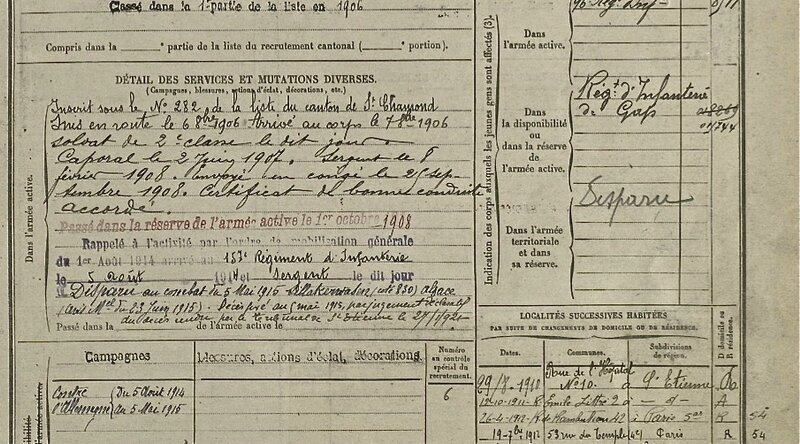 Classé dans la 1re partie de la liste en 1906
Compris dans la partie de la liste du recrutement cantonal ( e portion).
DÉTAIL DES SERVICES ET MUTATIONS DIVERSES.
(Campagnes, blessures, actions d'éclat, décorations, etc.)
Inscrit sous le No 282 de la liste du canton de St Chamond
Mis en route le 6 8bre 1906 Arrivé au corps le 7 8bre 1906
soldat de 2e classe le dit jour.
Caporal le 2 Juin 1907. Sergent le 8
février 1908. Envoyé en congé le 25 sep-
tembre 1908. Certificat de bonne conduite
accordé.
Passé dans la réserve de l'armée active le 1er octobre 1908
Rappelé à l'activité par l'ordre de mobilisation générale
du 1er Août 1914 arrivé au 153e Régiment d'Infanterie
le 5 août 1914 et Sergent le dit jour
Disparu au combat du 5 Mai 1915 (côte 830) Alsace
(avis Mel du 23 Juin 1915) - Décédé au 5 mai 1915, par jugement déclaratif
du décès rendu par le tribunal de St Etienne le
Passé dans la de l'armée active le
Dans l'armée active.
Campagnes
Contre l'Allemagne
Du 5 Août 1914
au 5 Mai 1915
Blessures, actions d'éclat, décorations.
Numéro
au contrôle
spécial du
recrutement.
6
Indication des corps auxquels les jeunes gens sont affectés (3).
Dans
l'armée active.
Dans
la disponibilité
ou
dans la réserve
de
l'armée active.
Régt d'Infanterie
de Gap
Dans l'armée
territoriale
et dans
sa réserve.
Disparu
LOCALITÉS SUCCESSIVES HABITÉES
PAR SUITE DE CHANGEMENTS DE DOMICILE OU DE RÉSIDENCE.
Dates.
Communes.
Subdivisions
de région.
D domicile ou
R résidence.
29/7 1910 Rue de l'Hopital
No 10 - à St Etienne R
12-10-1911 - R. Emile Littré 2 à - d° - R
26-4-1912 - R. de Rambuteau 42 à Paris R 54
19-7bre 1912 53 rue du Temple (4e) Paris R 54